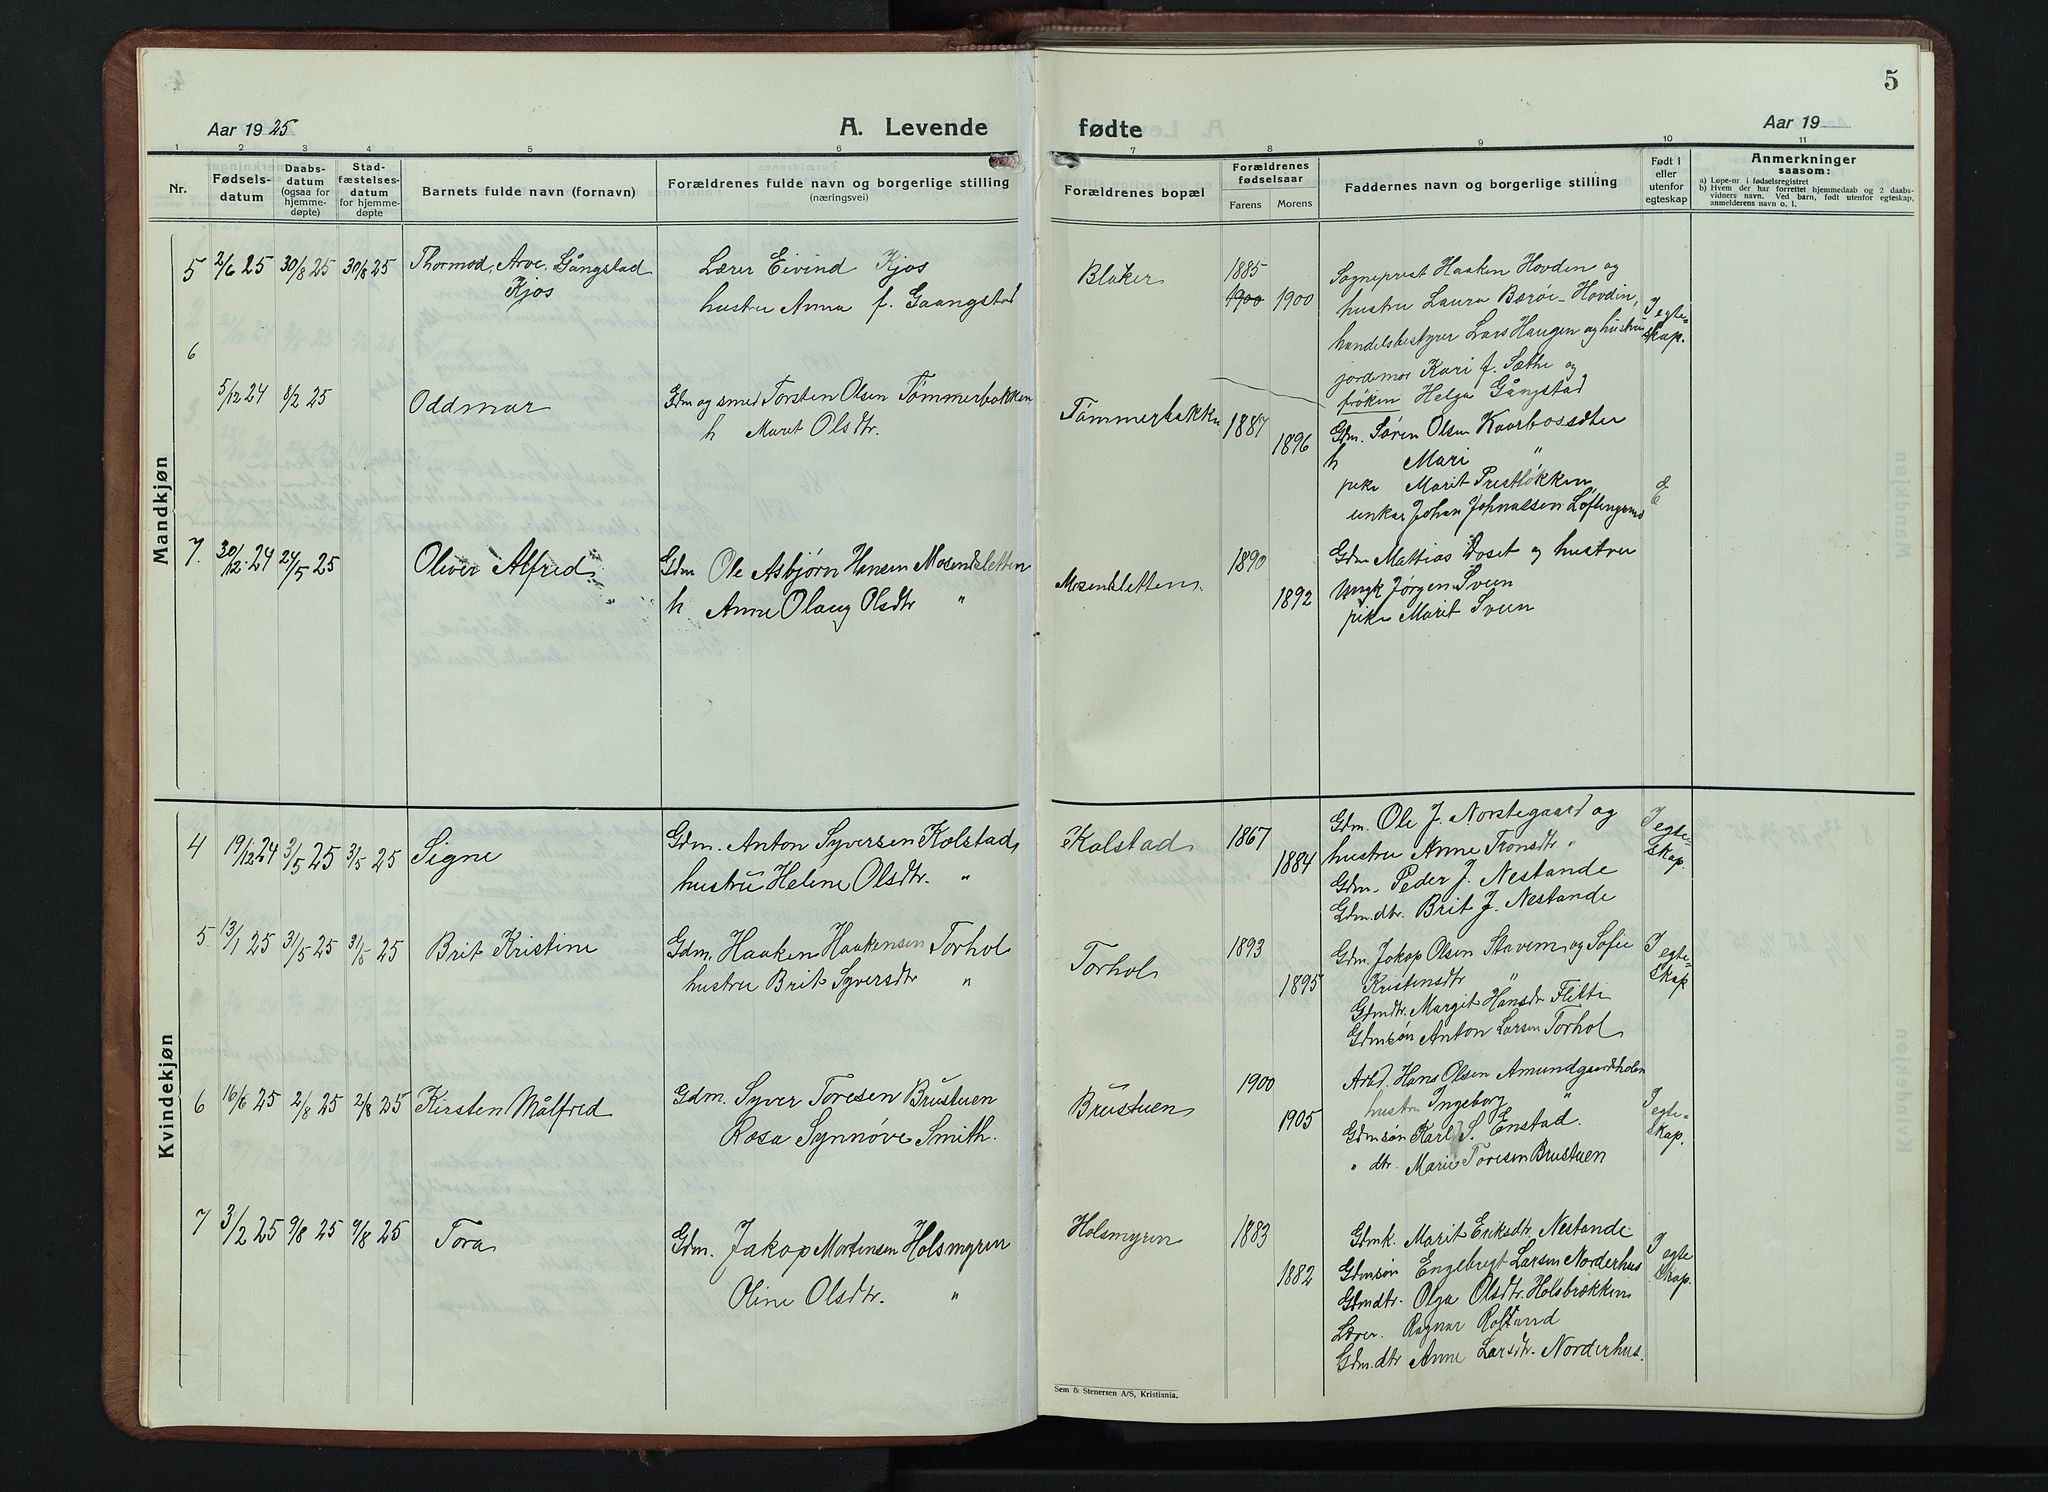 5
Aar 1925
A. Levende
fødte
Aar 19
1 2 3 4 5 6 7 8 9 10 11
Nr.
Fødselsdatum
Daabsdatum (ogsaa for hjemmedøpte)
Stadfæstelsesdatum for hjemmedøpte
Barnets fulde navn (fornavn)
Forældrenes fulde navn og borgerlige stilling
(næringsvei)
Forældrenes bopæl
Forældrenes fødselsaar
Farens Morens
Faddernes navn og borgerlige stilling
Født i eller utenfor egteskap
Anmerkninger
saasom:
a) Løpe-nr. i fødselsregistret
b) Hvem der har forrettet hjemmedaab og 2 daabsvidners navn. Ved barn, født utenfor egteskap, anmelderens navn o. l.
Mandkjøn
5 2/6 25 30/8 25 30/8 25 Thormod Arve Gångstad
Kjos
Lærer Eivind Kjos
hustru Anna f. Gaangstad
Blaker
1885
1900 1900
Sogneprest Haaken Hovden og
hustru Laura Bærøe-Hovdin,
handelsbestyrer Lars Haugen og hustru
jordemor Kari f. Sæthe og
frøken Helga Gångstad
I egteskap.
6
5/12 24 8/2 25 Oddmar
Gdm og smed Torsten Olsen Tømmerbakken
h Marit Olsdtr.
Tømmerbakken
1887
1896
Gdm. Søren Olsen
h Mari "
pike Marit Prestløkken
unkar Johan Johnassen
E
7. 30/12 24 24/5 25 Oliver Alfred
Gdm Ole Asbjørn Hansen Mosendsletten
h Anne Olaug Olsdtr "
Mosendsletten
1890
1892
Gdm Mattias Doset og hustru
Ungk Jørgen Sveen
pike Marit Sveen
Kvindekjøn
4 19/12 24 3/5 25 3/5 25 Signe
Gdm. Anton Syversen Kolstad
hustru Helene Olsdtr. "
Kolstad
1867
1884
Gdm. Ole J. Norstegaard og
hustru Anne Tronsdtr "
Gdm. Peder J. Nestande
Gdm.dtr. Brit J. Nestande
I egteskap.
5. 13/1 25 31/5 25 31/5 25 Brit Kristine
Gdm. Haaken Haakensen Torhol
hustru Brit Syversdtr "
Torhol
1893
1895
Gdm. Jakop Olsen Stavem og Sofie
Kristensdtr "
Gdmdtr. Margit Hansdr Flitti
Gdmsøn Anton Larsen Torhol
I egteskap
6 16/6 25 2/8 25 2/8 25 Kirsten Målfred
Gdm. Syver Toresen Brustuen
Rosa Synnøve Smith.
Brustuen
1900
1905
Arbd. Hans Olsen Amundgaardholen
hustru Ingeborg "
Gdmsøn Karl S. Enstad.
" dtr. Marie Toresen Brustuen
I egteskap.
7 3/2 25 9/8 25 9/8 25 Tora
Gdm. Jakop Mortensen Holsmyren
Oline Olsdtr. "
Holsmyren
1883
1882
Gdmk. Marit Eriksdtr. Nestande
Gdmsøn Engebregt Larsen Norderhus
Gdmdtr. Olga Olsdtr. Holsbrækken
Lærer. Ragnar Rolstand
Gdm.dtr Anne Larsdtr. Norderhus.
I egteskap.
Sem & Stenersen A/S, Kristiania.